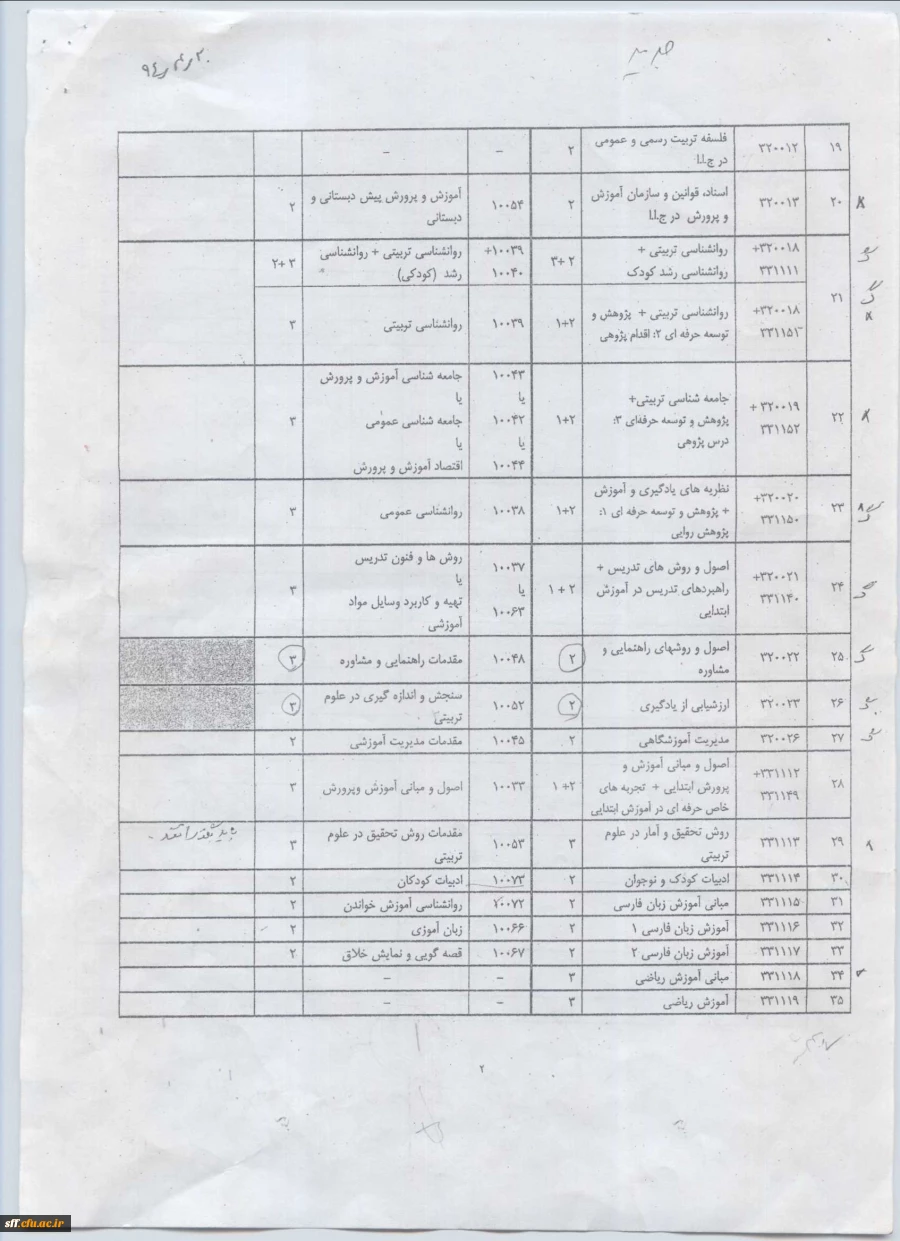 جدید
۱۹ ۳۲۰۰۱۲ فلسفه تربیت رسمی و عمومی ۲ – –
در ج.ا.ا
۲۰ ۳۲۰۰۱۳ اسناد، قوانین و سازمان آموزش ۲ ۱۰۰۵۴ آموزش و پرورش پیش دبستانی و ۲
و پرورش در ج.ا.ا دبستانی
۲۱ ۳۲۰۰۱۸+ روانشناسی تربیتی + ۲+۳ ۱۰۰۳۹+ روانشناسی تربیتی + روانشناسی ۳+۲
۳۳۱۱۱۱ روانشناسی رشد کودک ۱۰۰۴۰ رشد (کودکی)
۳۲۰۰۱۸+ روانشناسی تربیتی + پژوهش و ۱+۲ ۱۰۰۳۹ روانشناسی تربیتی ۳
۳۳۱۱۵۱ توسعه حرفه ای ۲: اقدام پژوهی
۲۲ ۳۲۰۰۱۹ + جامعه شناسی تربیتی+ ۱+۲ ۱۰۰۴۳ جامعه شناسی آموزش و پرورش ۳
۳۳۱۱۵۲ پژوهش و توسعه حرفه‌ای ۳: یا یا
درس پژوهی ۱۰۰۴۲ جامعه شناسی عمومی
یا یا
۱۰۰۴۴ اقتصاد آموزش و پرورش
۲۳ ۳۲۰۰۲۰+ نظریه های یادگیری و آموزش ۱+۲ ۱۰۰۳۸ روانشناسی عمومی ۳
۳۳۱۱۵۰ + پژوهش و توسعه حرفه ای ۱:
پژوهش روایی
۲۴ ۳۲۰۰۲۱+ اصول و روش های تدریس + ۲ + ۱ ۱۰۰۳۷ روش ها و فنون تدریس ۳
۳۳۱۱۴۰ راهبردهای تدریس در آموزش یا یا
ابتدایی ۱۰۰۶۳ تهیه و کاربرد وسایل مواد
آموزشی
۲۵ ۳۲۰۰۲۲ اصول و روشهای راهنمایی و ۲ ۱۰۰۴۸ مقدمات راهنمایی و مشاوره ۳
مشاوره
۲۶ ۳۲۰۰۲۳ ارزشیابی از یادگیری ۲ ۱۰۰۵۲ سنجش و اندازه گیری در علوم ۳
تربیتی
۲۷ ۳۲۰۰۲۶ مدیریت آموزشگاهی ۲ ۱۰۰۴۵ مقدمات مدیریت آموزشی ۲
۲۸ ۳۳۱۱۱۲+ اصول و مبانی آموزش و ۲+ ۱ ۱۰۰۳۳ اصول و مبانی آموزش وپرورش ۳
۳۳۱۱۴۹ پرورش ابتدایی + تجربه های
خاص حرفه ای در آموزش ابتدایی
۲۹ ۳۳۱۱۱۳ روش تحقیق و آمار در علوم ۳ ۱۰۰۵۳ مقدمات روش تحقیق در علوم ۳
تربیتی تربیتی
۳۰ ۳۳۱۱۱۴ ادبیات کودک و نوجوان ۲ ۱۰۰۷۳ ادبیات کودکان ۲
۳۱ ۳۳۱۱۱۵ مبانی آموزش زبان فارسی ۲ ۱۰۰۷۲ روانشناسی آموزش خواندن ۲
۳۲ ۳۳۱۱۱۶ آموزش زبان فارسی ۱ ۲ ۱۰۰۶۶ زبان آموزی ۲
۳۳ ۳۳۱۱۱۷ آموزش زبان فارسی ۲ ۲ ۱۰۰۶۷ قصه گویی و نمایش خلاق ۲
۳۴ ۳۳۱۱۱۸ مبانی آموزش ریاضی ۳ – –
۳۵ ۳۳۱۱۱۹ آموزش ریاضی ۳ – –
۲
sff.cfu.ac.ir